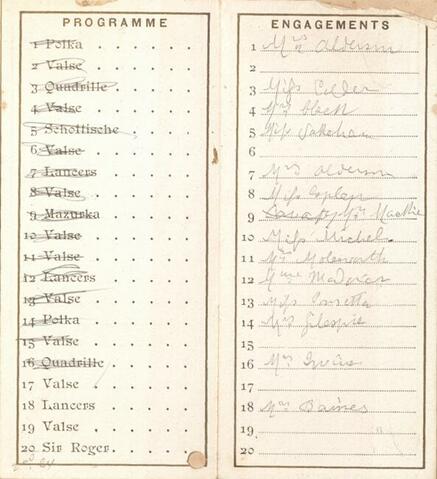 PROGRAMME
1 Polka
2 Valse
3 Quadrille
4 Valse
5 Schottische
6 Valse
7 Lancers
8 Valse
9 Mazurka
10 Valse
11 Valse
12 Lancers
13 Valse
14 Polka
15 Valse
16 Quadrille
17 Valse
18 Lancers
19 Valse
20 Sir Roger
ENGAGEMENTS
1 Mrs Alderson
2
3 Miss Calder
4 Mrs Black
5 Miss
6
7 Mrs Alderson
8 Miss
9 Mrs Mackie
10 Miss Michel
11 Mrs Molesworth
12 Mme
13 Miss
14 Mrs Gilespie
15
16 Mrs Irvine
17
18 Mrs Baines
19
20